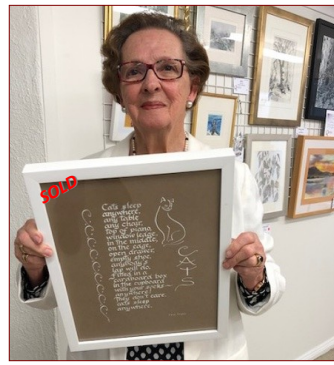 SOLD
Cats sleep
anywhere,
any table
any chair,
top of piano
window ledge
in the middle,
on the edge,
open drawer
empty shoe,
anybody's
lap will do.
Fitted in a
cardboard box
in the cupboard
with your frocks—
anywhere!
They don't care.
cats sleep
anywhere.
CATS